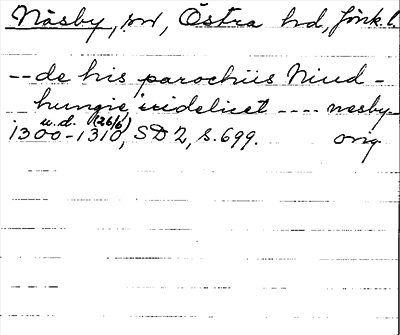 Näsby, sn, Östra hd, Jönk. l.
-- de his parochiis Niud-
hungie, uidelicet ---- næsby
u.d. (26/6)
1300-1310, SD 2, s. 699. orig